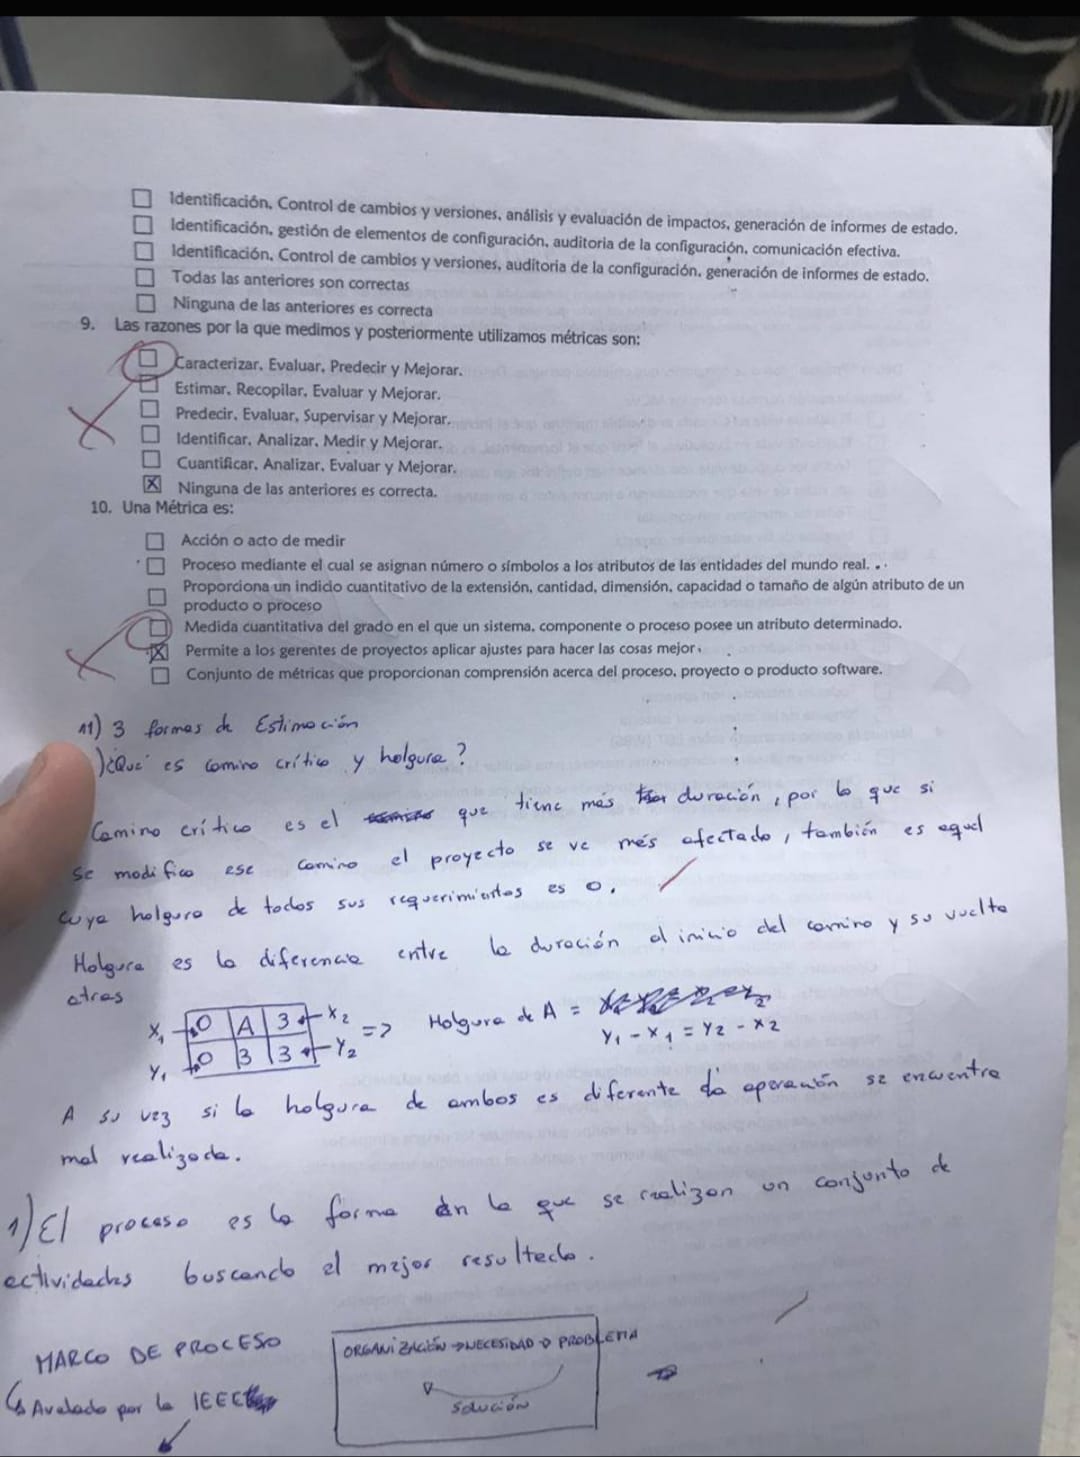 Identificación, Control de cambios y versiones, análisis y evaluación de impactos, generación de informes de estado.
Identificación, gestión de elementos de configuración, auditoria de la configuración, comunicación efectiva.
Identificación, Control de cambios y versiones, auditoria de la configuración, generación de informes de estado.
Todas las anteriores son correctas
Ninguna de las anteriores es correcta
9. Las razones por la que medimos y posteriormente utilizamos métricas son:
Caracterizar, Evaluar, Predecir y Mejorar.
Estimar, Recopilar, Evaluar y Mejorar.
Predecir, Evaluar, Supervisar y Mejorar.
Identificar, Analizar, Medir y Mejorar.
Cuantificar, Analizar, Evaluar y Mejorar.
X Ninguna de las anteriores es correcta.
10. Una Métrica es:
Acción o acto de medir
Proceso mediante el cual se asignan número o símbolos a los atributos de las entidades del mundo real.
Proporciona un indicio cuantitativo de la extensión, cantidad, dimensión, capacidad o tamaño de algún atributo de un
producto o proceso
Medida cuantitativa del grado en el que un sistema, componente o proceso posee un atributo determinado.
X Permite a los gerentes de proyectos aplicar ajustes para hacer las cosas mejor.
Conjunto de métricas que proporcionan comprensión acerca del proceso, proyecto o producto software.
11) 3 formas de Estimación
) ¿Qué es camino crítico y holgura?
Camino crítico es el que tiene más duración, por lo que si
se modifica ese camino el proyecto se ve más afectado, también es aquel
cuya holgura de todos sus requerimientos es 0.
Holgura es la diferencia entre la duración al inicio del camino y su vuelta
atras
X1 0 A 3 X2 => Holgura de A =
Y1 0 3 3 Y2 Y1 - X1 = Y2 - X2
A su vez si la holgura de ambos es diferente la operación se encuentra
mal realizada.
1) El proceso es la forma en la que se realizan un conjunto de
actividades buscando el mejor resultado.
MARCO DE PROCESO
Avalado por la IEEE
ORGANIZACIÓN → NECESIDAD o PROBLEMA
SOLUCIÓN